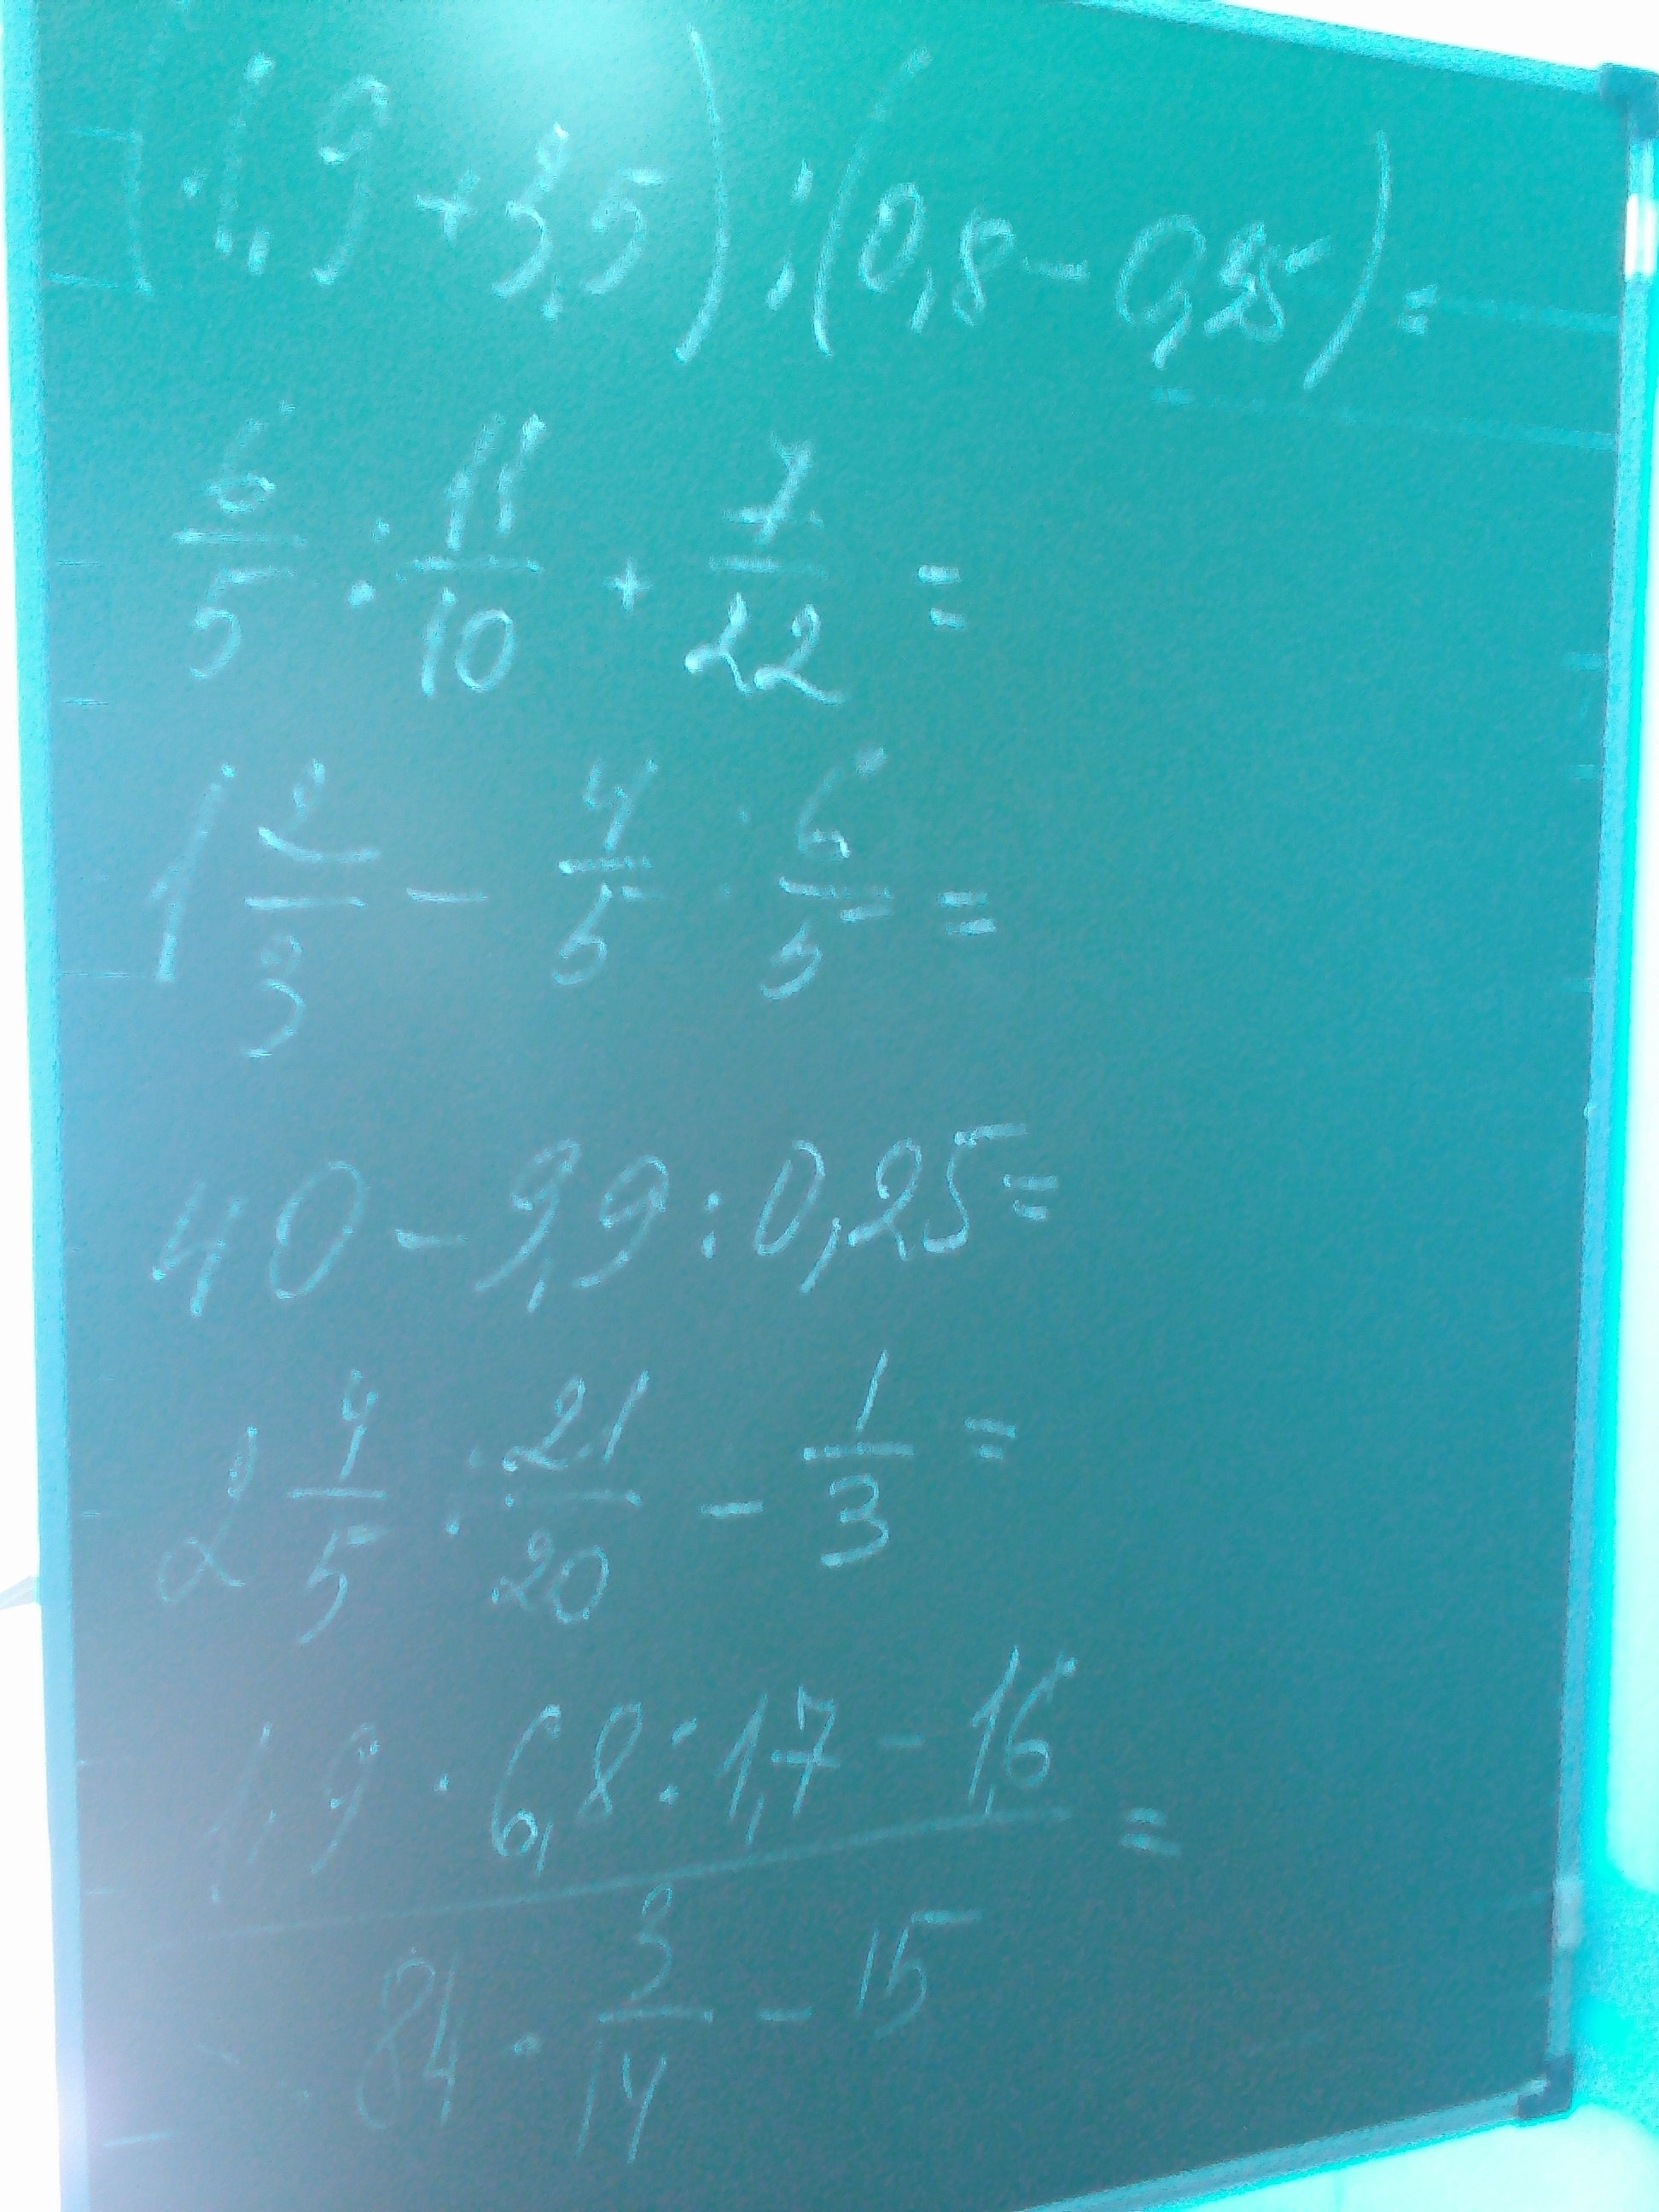 (1,9 + 3,5) : (0,8 - 0,35) =
6/5 : 11/10 + 7/22 =
1 2/3 - 4/5 : 6/5 =
40 - 9,9 : 0,25 =
2 4/5 : 21/20 - 1/3 =
1,9 · 6,8 : 1,7 - 1,6 =
84 · 3/14 - 15